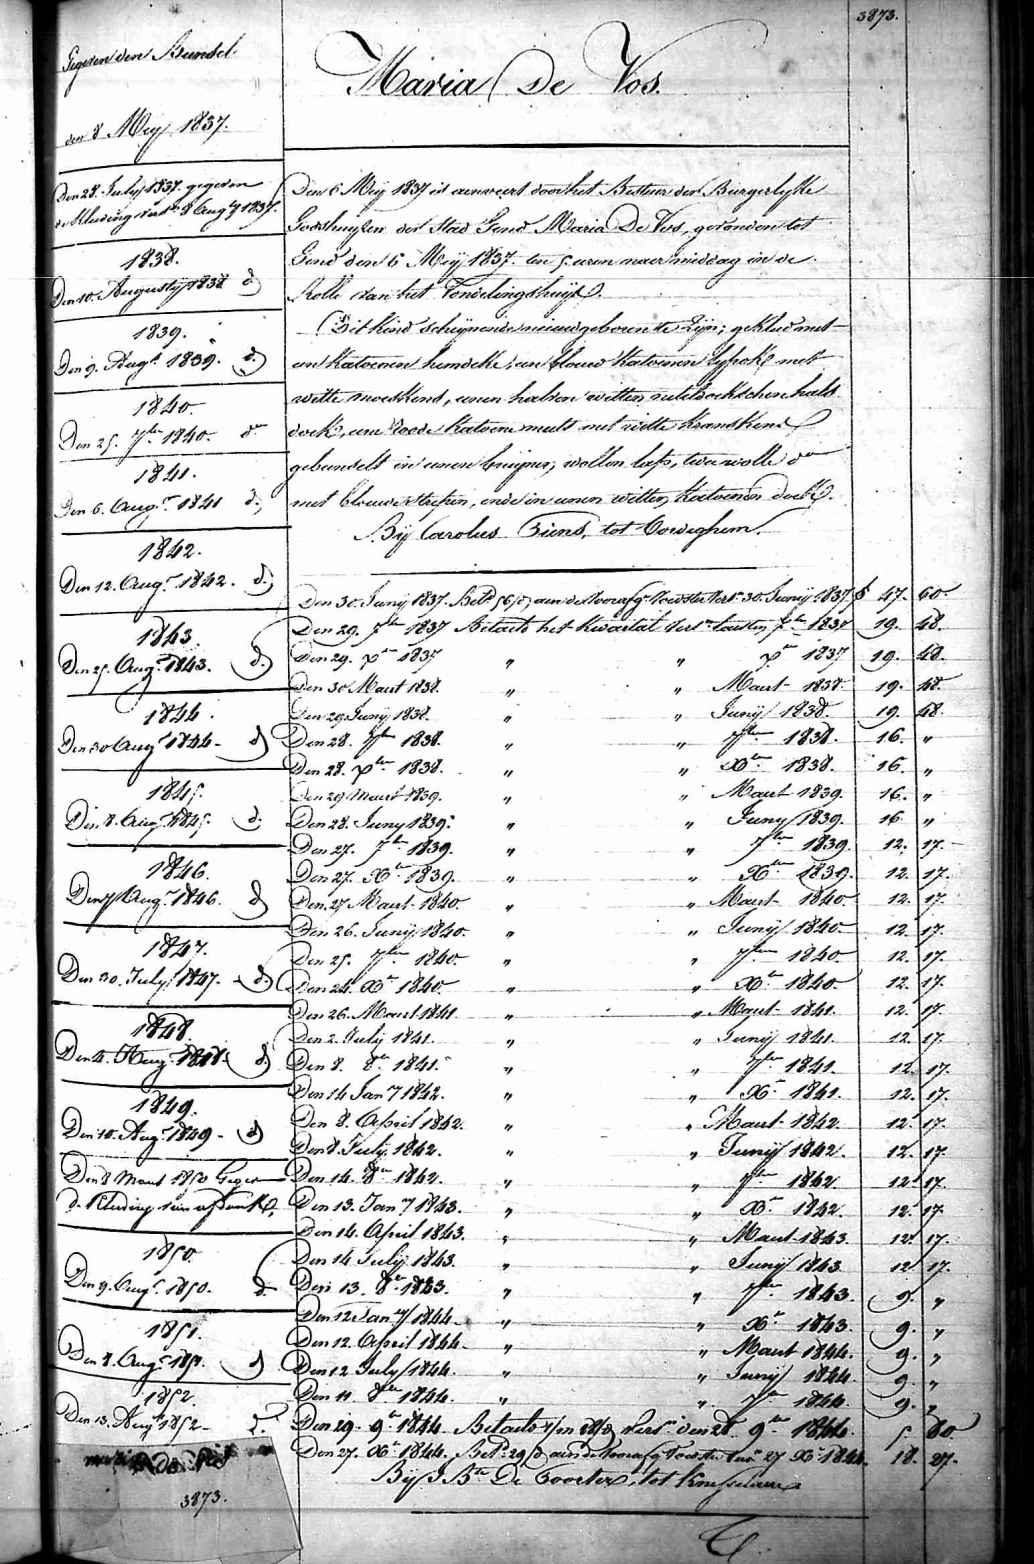 3873.
Gegeven den Bundel
den 8 Meij 1837.
Maria De Vos.
Den 28. July 1837. gegeven
de Kleeding 8 Augt 1837.
1838.
Den 10. Augusty 1838 do
1839.
Den 9. Augt 1839. do
1840.
Den 25. 7ber 1840. do
1841.
Den 6. Augt 1841 do
1842.
Den 12. Augt 1842. do
1843.
Den 25. Augt 1843. do
1844.
Den 30 Augt 1844 do
1845.
Den 8. Augt 1845 do
1846.
Den 7 Augt 1846. do
1847.
Den 30. July 1847. do
1848
Den 4. Augt 1848 do
1849.
Den 10. Augt 1849 - do
Den 8 Maert 1850 Gegev
de Kleeding
1850.
Den 9. Augt 1850. do
1851.
Den 8. Augt 1851. do
1852.
Den 13. Augt 1852 do
3873.
Den 6 Meij 1837 is aenveert door het Bestuer der Burgerlijke
Godshuysen der Stad Gend Maria De Vos, gevonden tot
Gend den 6 Meij 1837. ten 5 uren naer middag in de
Rolle van het Vondelingshuys.
Dit kind schijnende nieuwgeboren te zijn; gekleed met
een katoenen hemdeke, een blauw katoenen lyfrok met
witte moeskens, eenen halven witten neteldoekschen hals
doek, eene roode katoene muts met witte kranskens
gebundelt in eenen bruynen wollen lap, twee wolle do
met blauwe strepen, ende in eenen witten katoenen doek.
Bij Carolus Tiens, tot Vosseghem.
Den 30. Junij 1837. Betd aen de voorsg. Voester 30. Junij 1837 f 47. 60.
Den 29. 7ber 1837 Betaelt het kwartael 7ber 1837 19. 48.
Den 29. Xber 1837 " " Xber 1837 19. 48.
Den 30 Maert 1838. " " Maert 1838. 19. 48.
Den 29 Junij 1838. " " Junij 1838. 19. 48.
Den 28. 7ber 1838. " " 7ber 1838. 16. "
Den 28. Xber 1838. " " Xber 1838. 16. "
Den 29 Maert 1839. " " Maert 1839. 16. "
Den 28. Juny 1839. " " Juny 1839. 16 "
Den 27. 7ber 1839. " " 7ber 1839. 12. 17.
Den 27. Xber 1839. " " Xber 1839. 12. 17.
Den 27 Maert 1840 " " Maert 1840 12. 17.
Den 26. Junij 1840. " " Junij 1840. 12. 17.
Den 25. 7ber 1840 " " 7ber 1840. 12. 17.
Den 24. Xber 1840. " " Xber 1840 12. 17.
Den 26. Maert 1841 " " Maert 1841. 12. 17.
Den 2. July 1841. " " Junij 1841. 12. 17.
Den 8. 8ber 1841. " " 7ber 1841. 12. 17.
Den 14 Jany 1842. " " Xber 1841. 12. 17.
Den 8. April 1842. " " Maert 1842. 12. 17.
Den 8. July 1842. " " Junij 1842. 12. 17.
Den 14. 8ber 1842. " " 7ber 1842 12 17.
Den 13. Jany 1843. " " Xber 1842. 12. 17.
Den 14. April 1843. " " Maert 1843 12. 17.
Den 14 July 1843. " " Junij 1843 12. 17.
Den 13. 8ber 1843. " " 7ber 1843. 9. "
Den 12 Jany 1844. " " Xber 1843. 9. "
Den 12. April 1844. " " Maert 1844. 9. "
Den 12 July 1844. " " Junij 1844 9. "
Den 11 8ber 1844. " " 7ber 1844. 9. "
Den 29. 9ber 1844. Betaelt den 28. 9ber 1844. 5 60
Den 27. Xber 1844. Betd aen de voorsg Voester 27 Xber 1844. 18. 27.
Bij J. Bte De Coorter, tot Knesselaere